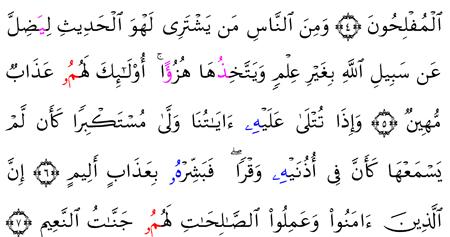 ٱلْمُفْلِحُونَ ۝٤ وَمِنَ ٱلنَّاسِ مَن يَشْتَرِى لَهْوَ ٱلْحَدِيثِ لِيَضِلَّ
عَن سَبِيلِ ٱللَّهِ بِغَيْرِ عِلْمٍ وَيَتَّخِذُهَا هُزُؤًا ۚ أُوْلَـٰٓئِكَ لَهُمُۥ عَذَابٌ
مُّهِينٌ ۝٥ وَإِذَا تُتْلَىٰ عَلَيْهِۦ ءَايَـٰتُنَا وَلَّىٰ مُسْتَكْبِرًا كَأَن لَّمْ
يَسْمَعْهَا كَأَنَّ فِى أُذُنَيْهِۦ وَقْرًا ۖ فَبَشِّرْهُۥ بِعَذَابٍ أَلِيمٍ ۝٦ إِنَّ
ٱلَّذِينَ ءَامَنُواْ وَعَمِلُواْ ٱلصَّـٰلِحَـٰتِ لَهُمُۥ جَنَّـٰتُ ٱلنَّعِيمِ ۝٧